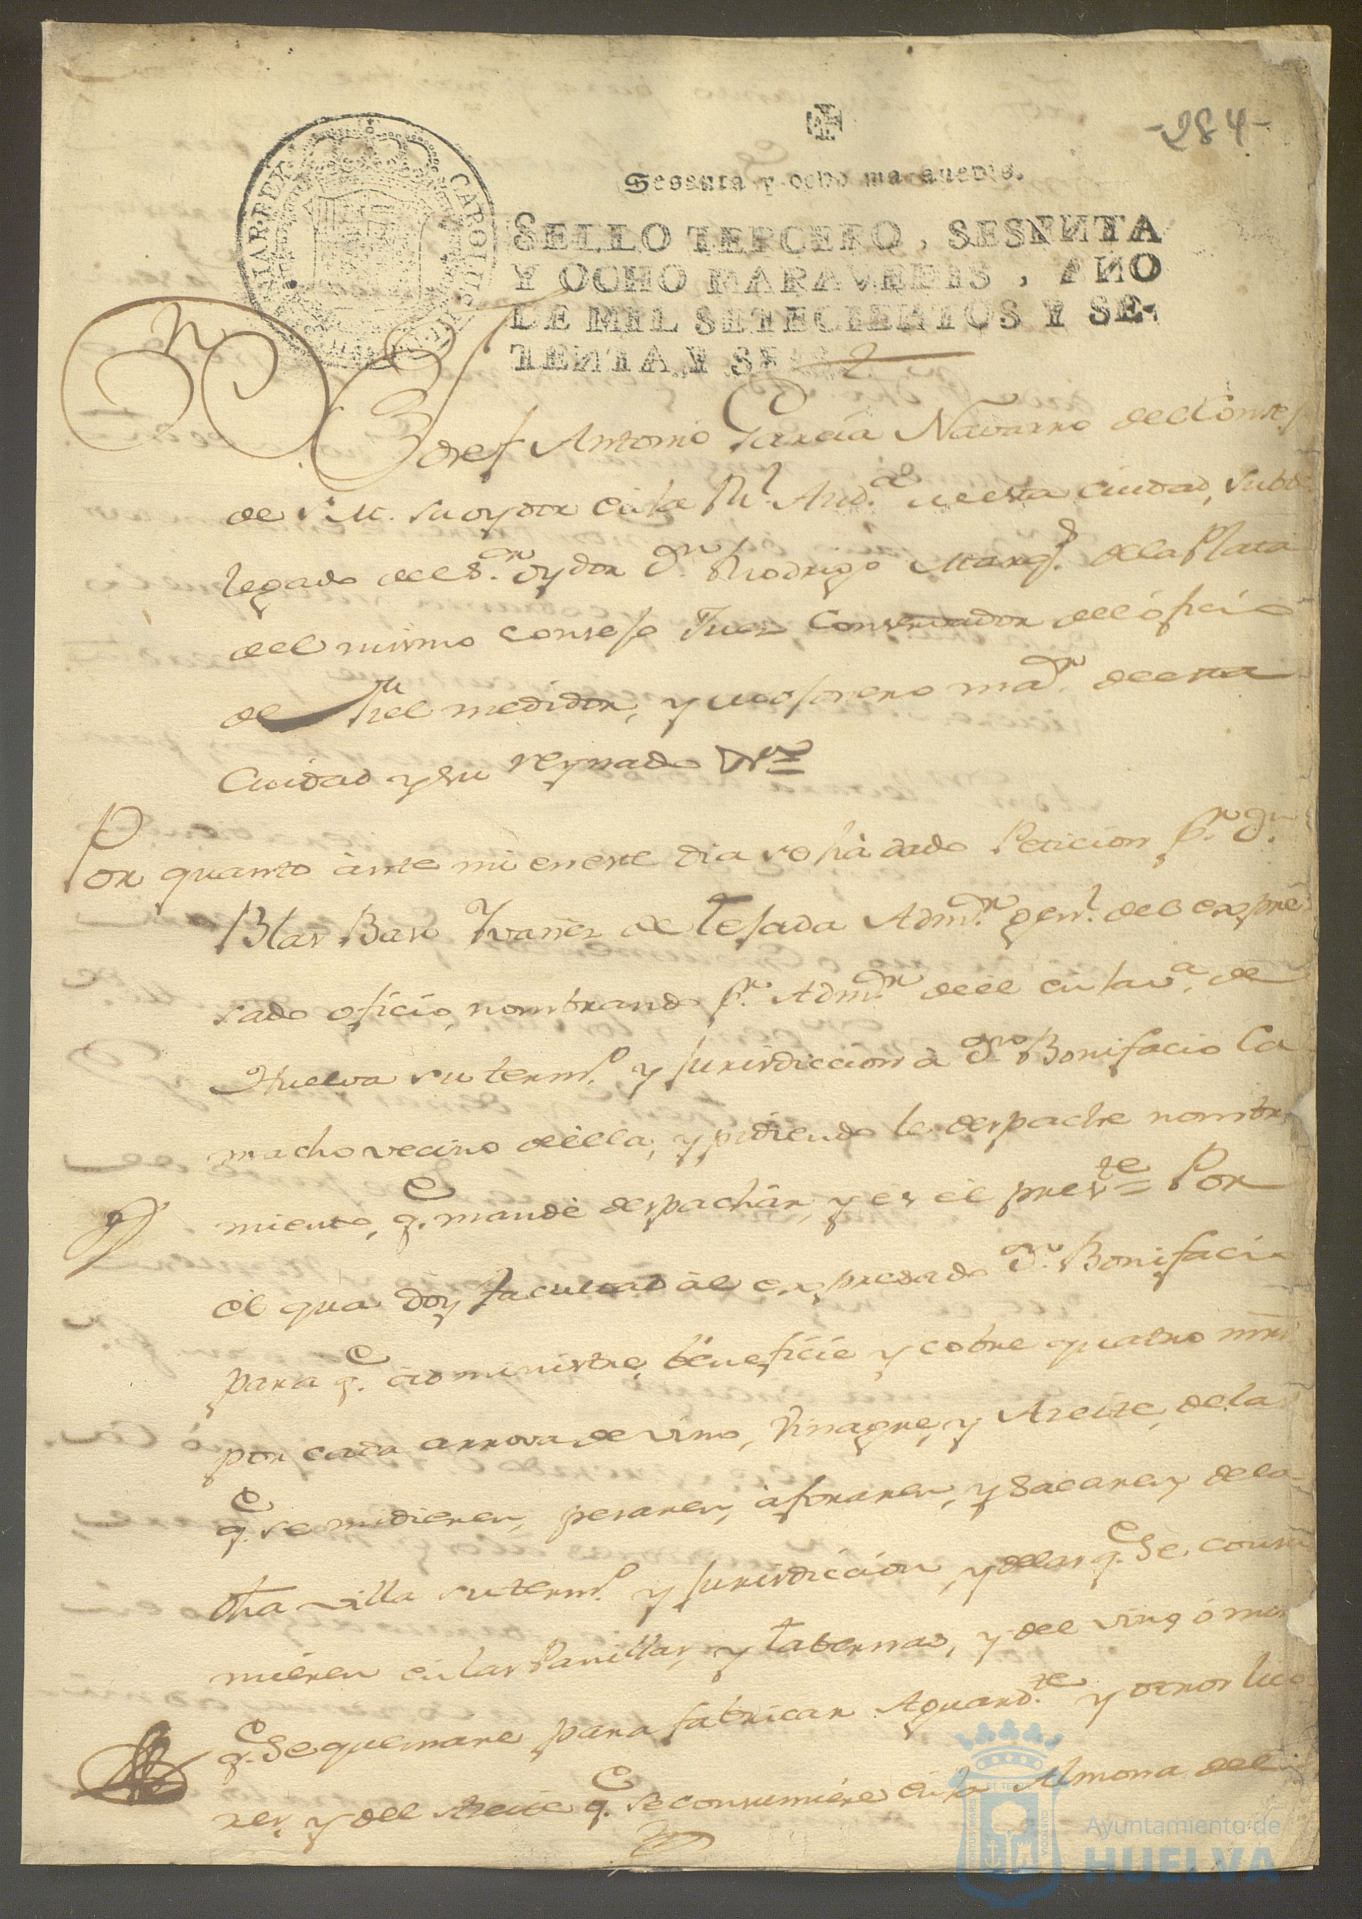 -284-
Sesenta y ocho marauedis.
SELLO TERCERO, SESENTA
Y OCHO MARAVEDIS, AÑO
DE MIL SETECIENTOS Y SE-
TENTA Y SE
CAROLUS III
HISPANIAR. REX
Dn. Josef Antonio Garcia Navarro del Consejo
de S.M. su oydor en la Rl. Audª. de esta Ciudad, subde
legado del Sor. oydor Dn. Rodrigo Marqs. de la Plata
del mismo Consejo Juez Conservador del oficio
de fiel medidor, y mojonero maor. de esta
Ciudad y su reynado
Por quanto ante mi en este dia se hà dado Peticion pr. Dn.
Blas Baso Yvañez de Tejada Admor. genl. del expre
sado oficio, nombrando pr. Admor. de él en la va. de
Huelva su termo. y jurisdiccion à Dn. Bonifacio Ca
macho vecino de ella, y pidiendo le despache nombra
miento, qe. mandè despachar, y es el preste = Por
el qual doy facultad àl expresado Dn. Bonifacio
para qe. administre, beneficie y cobre quatro mrs
por cada arrova de vino, Vinagre, y Azeite, de las
qe. se midieren, pesaren, àforaren, y Sacaren, de la
dha villa su termo. y jurisdiccion, y de las qe. Se consu
mieren en las Panillas, y tabernas, y del vino ò mos
qe. Se quemare para fabricar Aguardte. y otros lico
res, y del Azeite qe. se consumiere en la Almona de
Ayuntamiento de
HUELVA